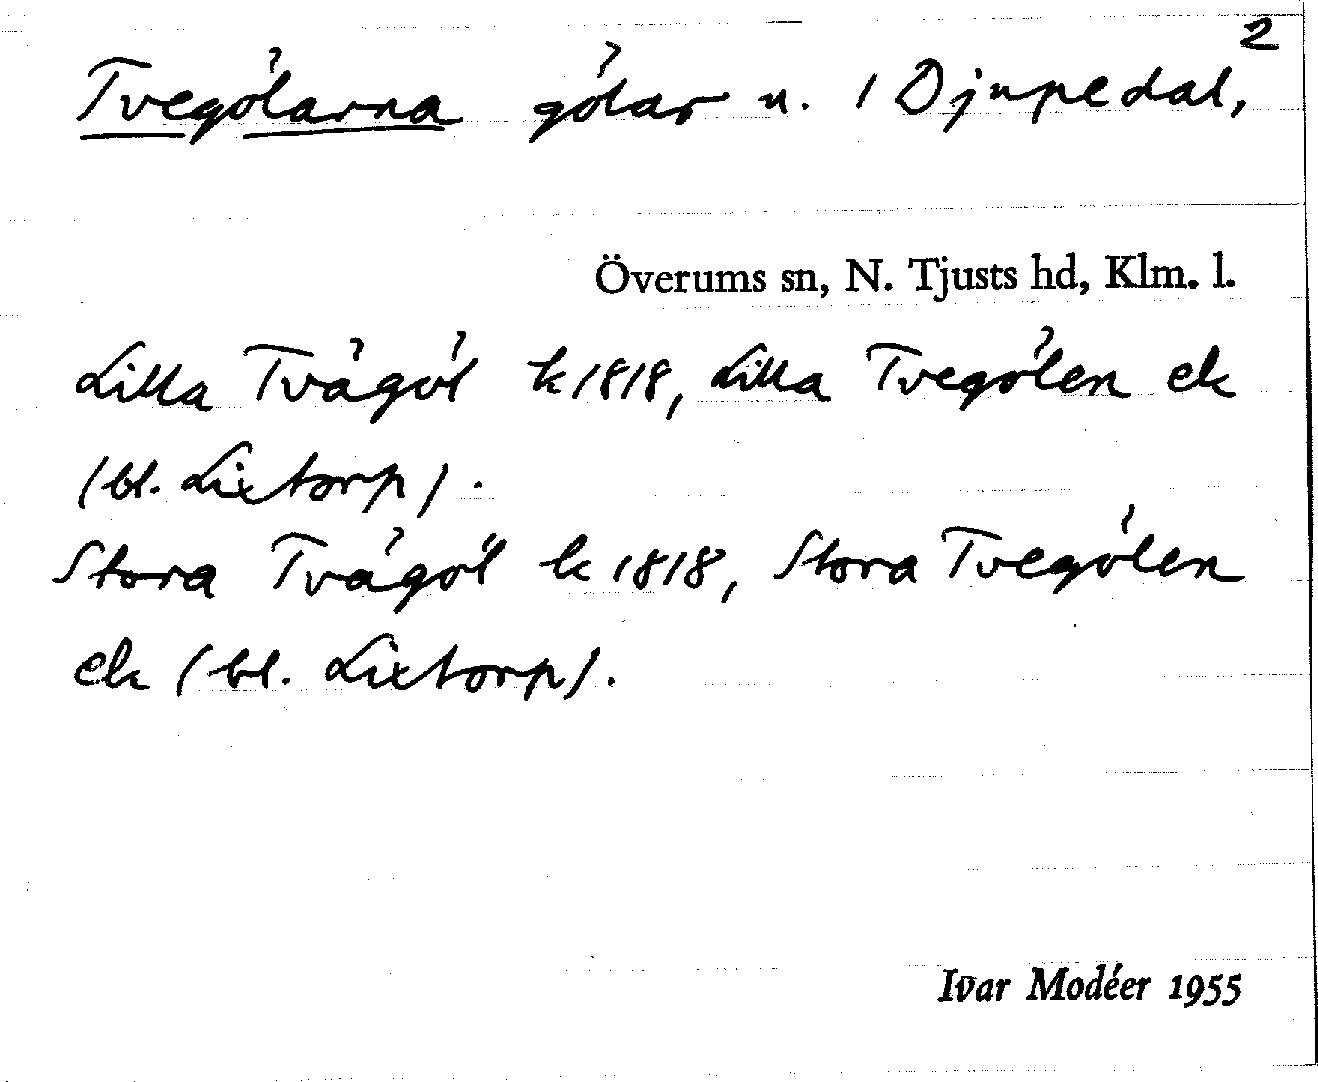 2
Tvegölarna gölar n. 1 Djupedal,
Överums sn, N. Tjusts hd, Klm. l.
Lilla Tvägöl k 1818, Lilla Tvegölen ek
(bl. Lixtorp).
Stora Tvägöl k 1818, Stora Tvegölen
ek (bl. Lixtorp).
Ivar Modéer 1955